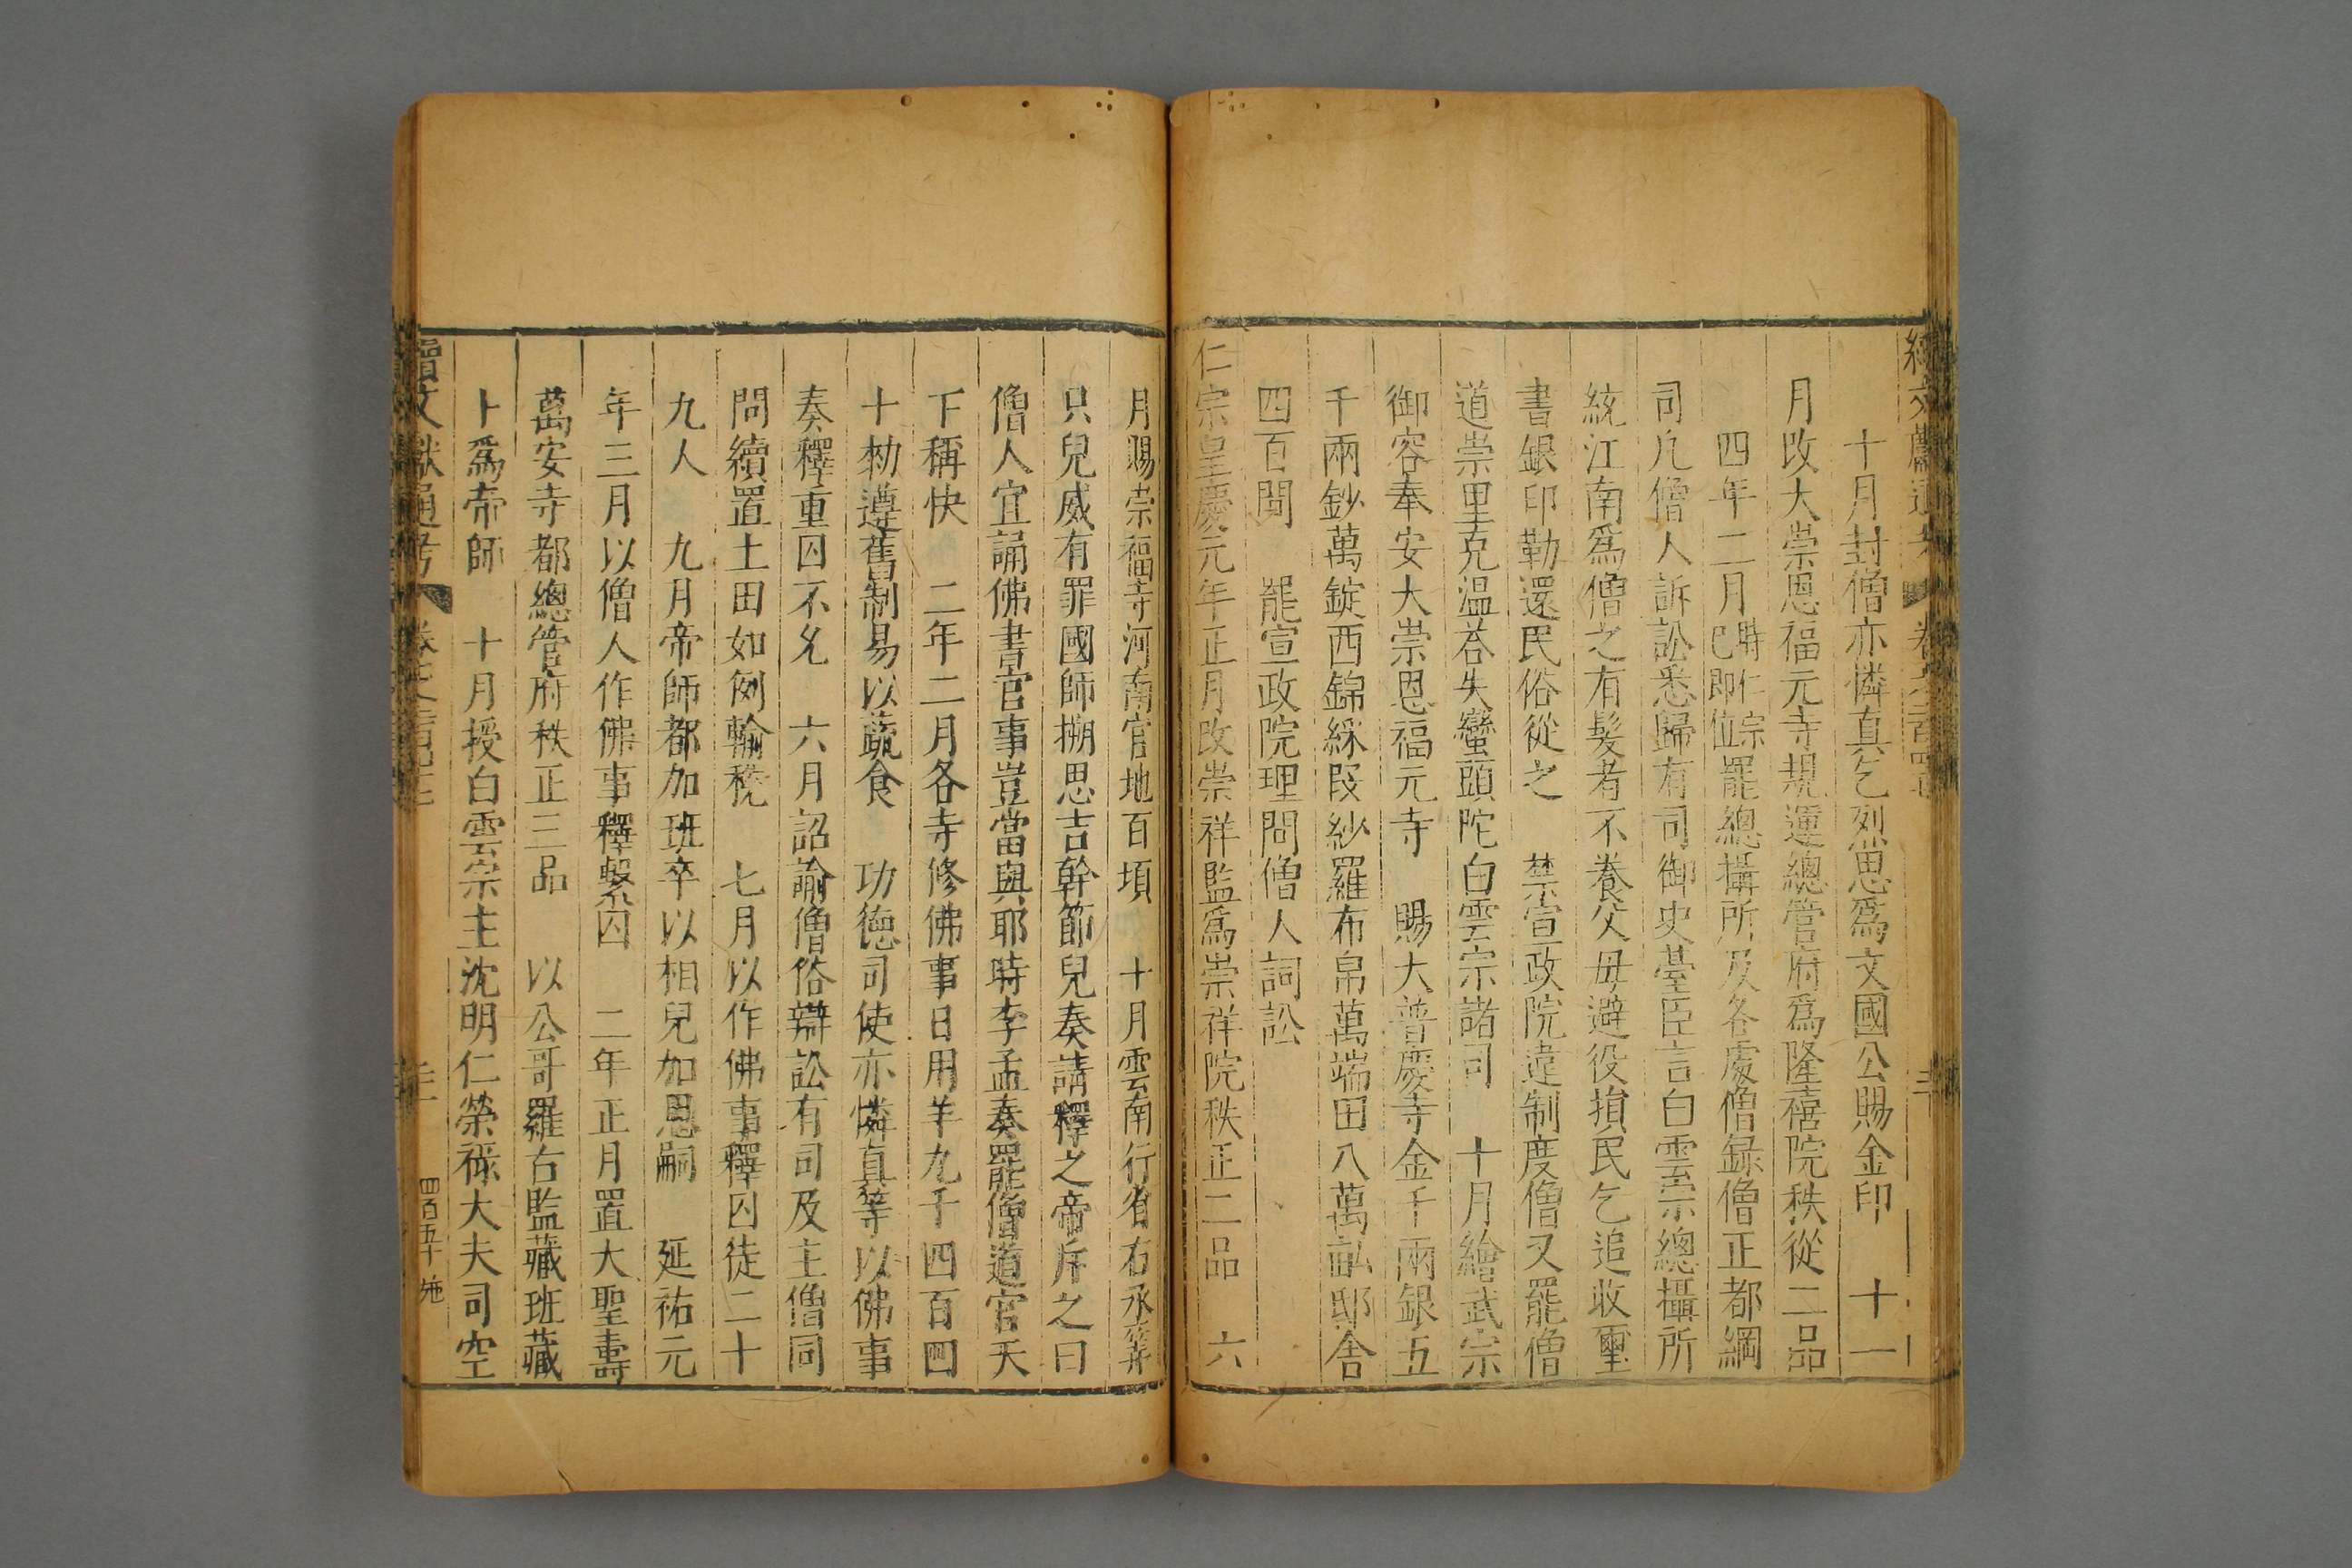 十月封僧亦憐真乞烈思爲文國公賜金印　十一
月改大崇恩福元寺規運總管府爲隆禧院秩從二品
四年二月時仁宗已即位罷總攝所及各處僧録僧正都綱
司凡僧人訴訟悉歸有司御史臺臣言白雲宗總攝所
統江南爲僧之有髮者不養父母避役損民乞追收璽
書銀印勒還民俗從之　禁宣政院違制度僧又罷僧
道崇里克温荅失蠻頭陀白雲宗諸司　十月繪武宗
御容奉安大崇恩福元寺　賜大普慶寺金千兩銀五
千兩鈔萬錠西錦綵段紗羅布帛萬端田八萬畝邸舍
四百間　罷宣政院理問僧人詞訟
仁宗皇慶元年正月改崇祥監爲崇祥院秩正二品　六
月賜崇福寺河南官地百頃　十月雲南行省右丞筭
只兒威有罪國師搠思吉幹節兒奏請釋之帝斥之曰
僧人宜誦佛書官事豈當與耶時李孟奏罷僧道官天
下稱快　二年二月各寺修佛事日用羊九千四百四
十勑遵舊制易以蔬食　功德司使亦憐真等以佛事
奏釋重囚不允　六月詔諭僧俗辯訟有司及主僧同
問續置土田如例輸稅　七月以作佛事釋囚徒二十
九人　九月帝師都加班卒以相兒加恩嗣　延祐元
年三月以僧人作佛事釋繫囚　二年正月置大聖壽
萬安寺都總管府秩正三品　以公哥羅右監藏班藏
卜爲帝師　十月授白雲宗主沈明仁榮祿大夫司空
續文獻通考
四百五十　施